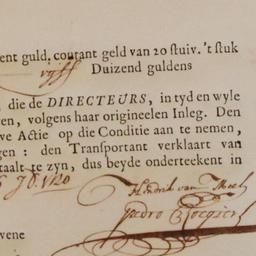 ent guld. courant geld van 20 stuiv. 't stuk
vyff Duizend guldens
, die de DIRECTEURS, in tyd en wyle
en, volgens haar origineelen Inleg. Den
ve Actie op die Conditie aan te nemen,
gen: den Transportant verklaart van
taalt te zyn, dus beyde onderteekent in
1720
Hendrik van
Pedro
vene